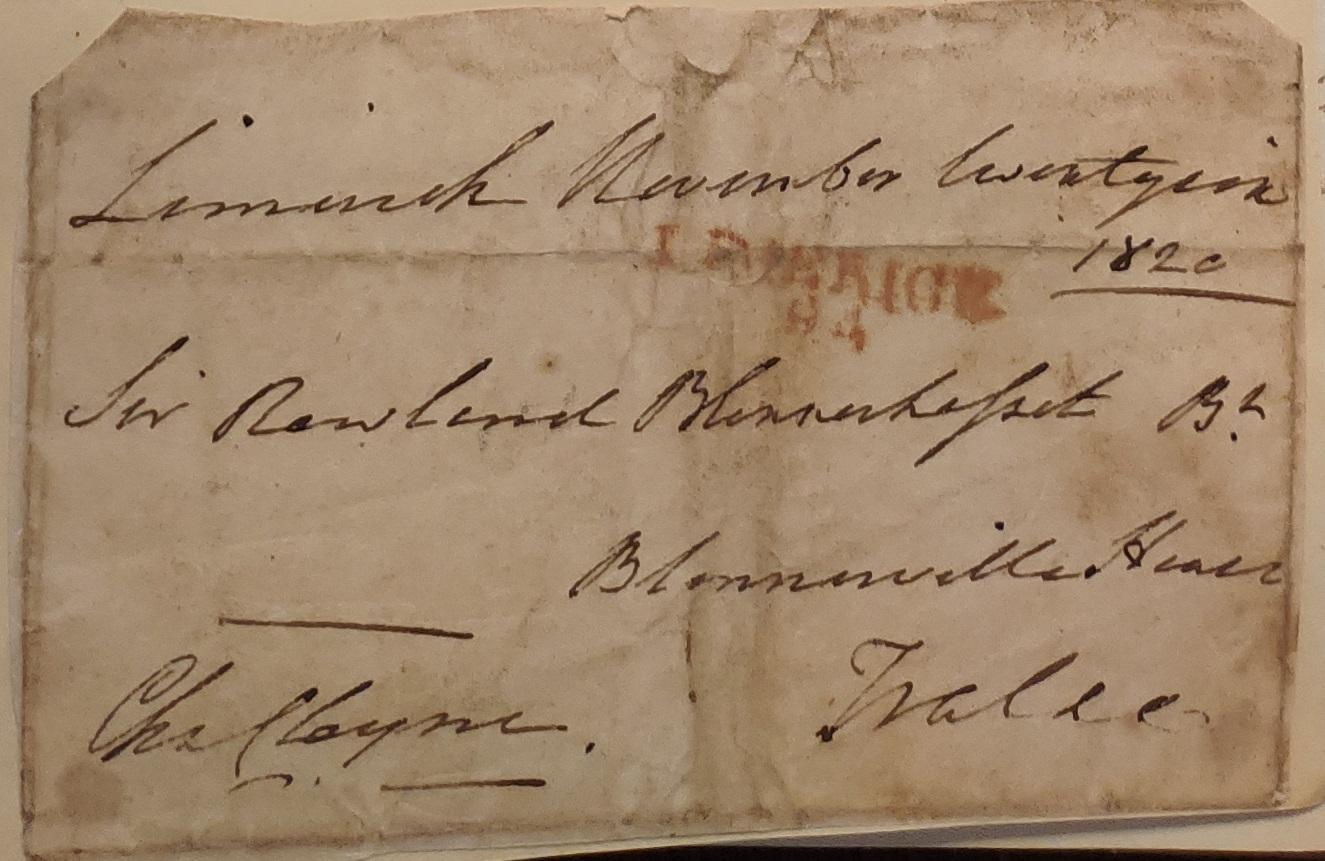 Limerick November twentysix
1820
LIMERICK
94
Sir Rowland Blennerhassett Bt.
Blennerville House
Tralee
Chs Cloyne.